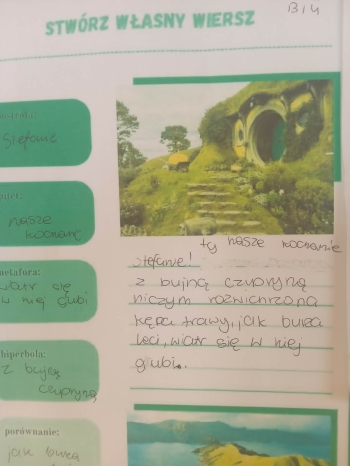 B14
STWÓRZ WŁASNY WIERSZ
Stefanie
nasze
kochane
metafora:
wiatr się
w niej gubi
hiperbola:
z bujną
czupryną
porównanie:
jak burza
ty nasze kochanie
Stefanie!
z bujną czupryną
niczym rozwichrzona
kępa trawy, jak burza
leci, wiatr się w niej
gubi..